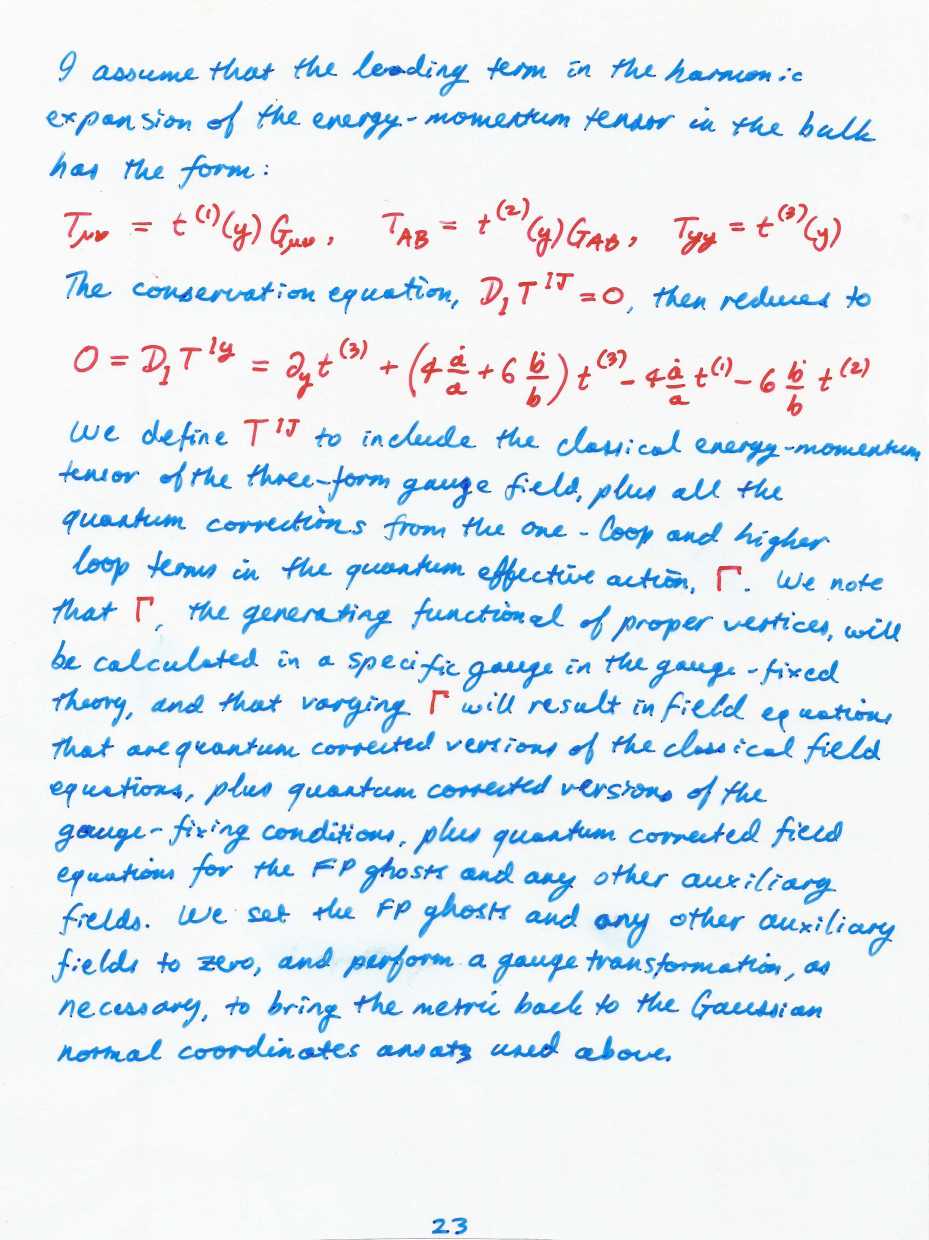 I assume that the leading term in the harmonic
expansion of the energy-momentum tensor in the bulk
has the form:
T_{μν} = t^{(1)}(y) G_{μν}, T_{AB} = t^{(2)}(y) G_{AB}, T_{yy} = t^{(3)}(y)
The conservation equation, D_I T^{IJ} = 0, then reduces to
0 = D_I T^{Iy} = ∂_y t^{(3)} + (4 ȧ/a + 6 ḃ/b) t^{(3)} - 4 ȧ/a t^{(1)} - 6 ḃ/b t^{(2)}
We define T^{IJ} to include the classical energy-momentum
tensor of the three-form gauge field, plus all the
quantum corrections from the one-loop and higher
loop terms in the quantum effective action, Γ. We note
that Γ, the generating functional of proper vertices, will
be calculated in a specific gauge in the gauge-fixed
theory, and that varying Γ will result in field equations
that are quantum corrected versions of the classical field
equations, plus quantum corrected versions of the
gauge-fixing conditions, plus quantum corrected field
equations for the FP ghosts and any other auxiliary
fields. We set the FP ghosts and any other auxiliary
fields to zero, and perform a gauge transformation, as
necessary, to bring the metric back to the Gaussian
normal coordinates ansatz used above.
23